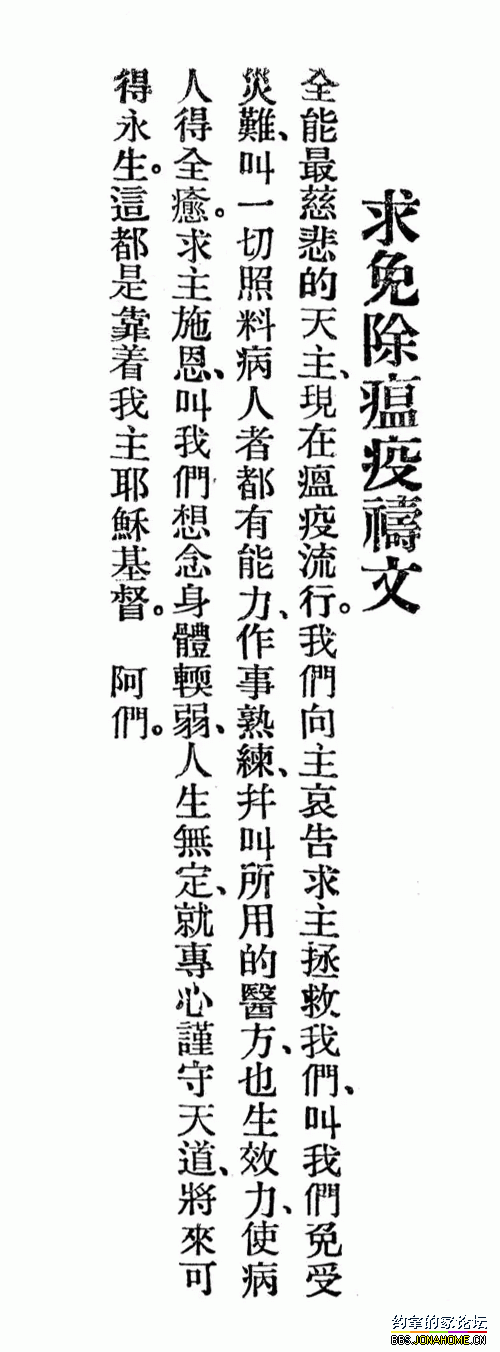 求免除瘟疫禱文
全能最慈悲的天主、現在瘟疫流行。我們向主哀告求主拯救我們、叫我們免受
災難、叫一切照料病人者都有能力、作事熟練、幷叫所用的醫方、也生效力、使病
人得全癒。求主施恩、叫我們想念身體輭弱、人生無定、就專心謹守天道、將來可
得永生。這都是靠着我主耶穌基督。 阿們。
约拿的家论坛
BBS.JONAHOME.CN